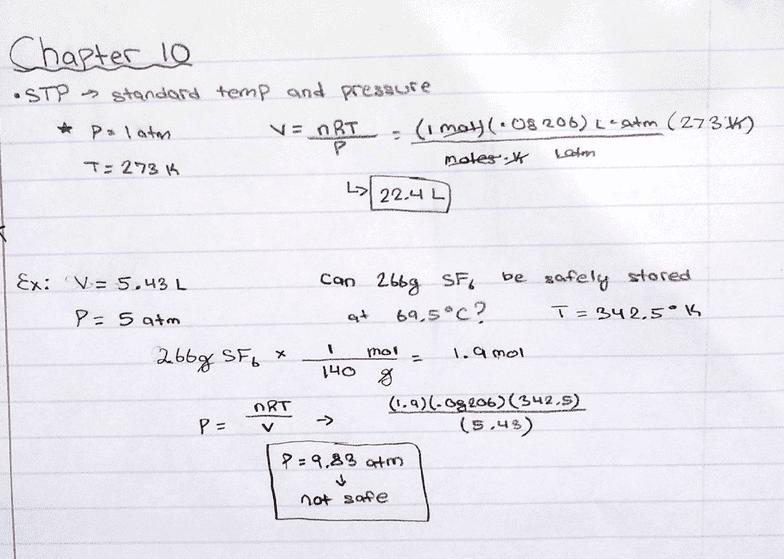 Chapter 10
• STP → standard temp and pressure
* P = 1 atm
T = 273 K
V = nRT / P = (1 mol)(.08206) L·atm (273 K) / moles·K 1 atm
↳ 22.4 L
Ex: V = 5.43 L
P = 5 atm
Can 266g SF₆ be safely stored
at 69.5°C? T = 342.5° K
266g SF₆ × 1 mol / 140 g = 1.9 mol
P = nRT / V → (1.9)(.08206)(342.5) / (5.43)
P = 9.83 atm
↓
not safe